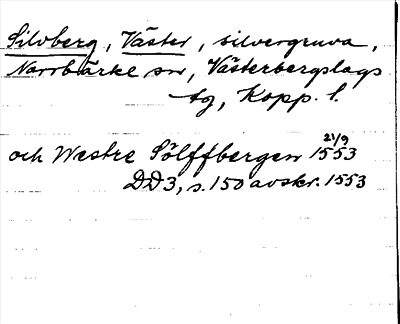 Silvberg, Väster, silvergruva,
Norrbärke sn, Västerbergslags
tg, Kopp. l.
och Westre Sölffbergen 21/9 1553
DD3, s. 150 avskr. 1553